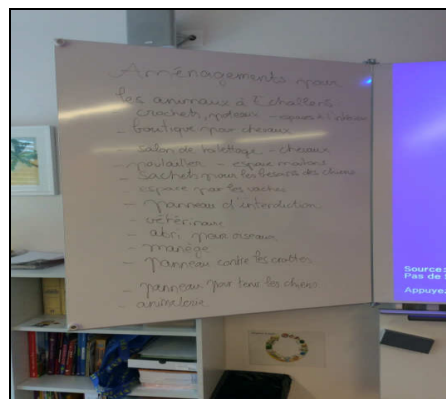 Aménagements pour
les animaux à Echallens
crochets, poteaux - espaces à l'intérieur
- boutique pour chevaux
- salon de toilettage - chevaux
- poulailler - espace
- Sachets pour les besoins des chiens
espace par les vaches
- panneau d'interdiction
- vétérinaire
- abri pour oiseaux
- manège
- panneau contre les crottes
- panneau pour tenir les chiens
- animalerie
Source:
Pas de
Appuyez